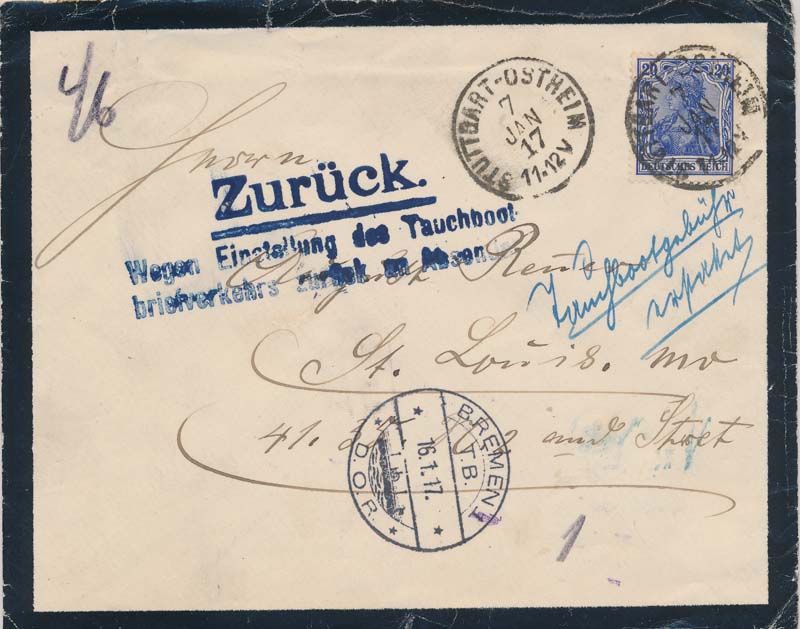 4/6
STUTTGART-OSTHEIM
7
JAN
17
11-12V
20 20
DEUTSCHES REICH
Herrn
Zurück.
Wegen Einstellung des Tauchboot
briefverkehrs zurück an Absender
Tauchbootgebühr
erstattet
August
St. Louis. Mo
41.
and Street
BREMEN 1
T.B.
16.1.17.
D.O.R.
1